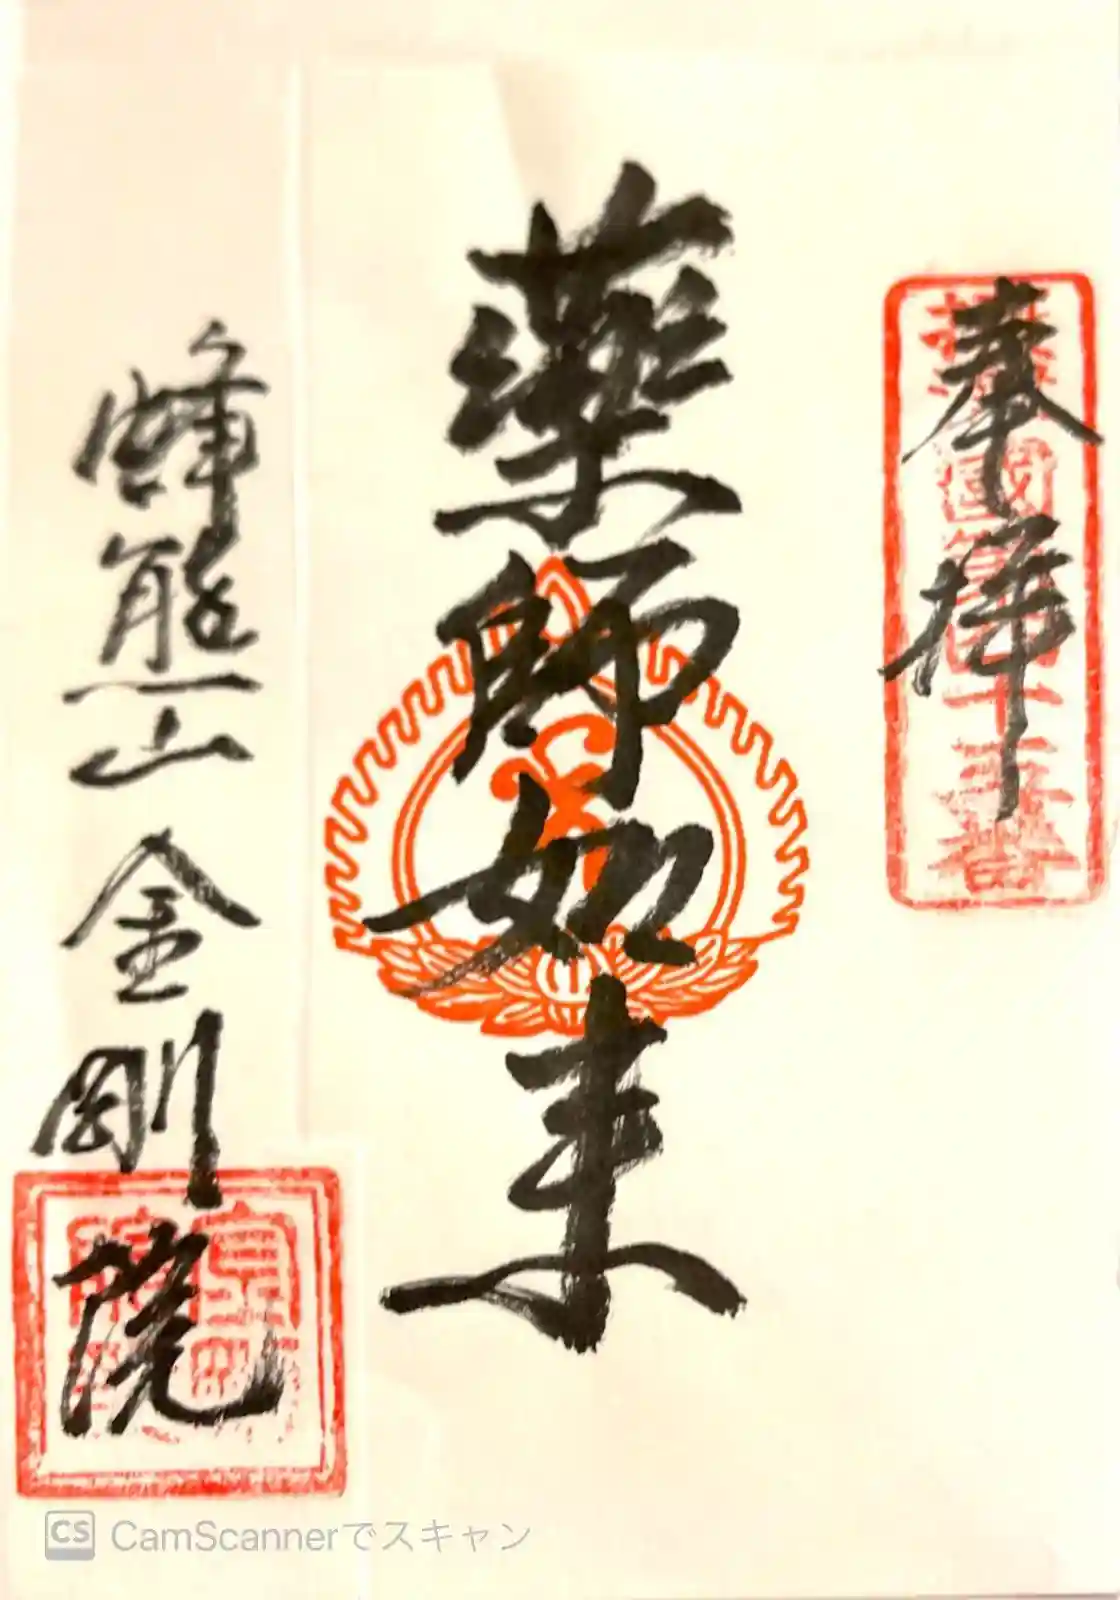 奉拝
薬師如来
蜂熊山
金剛院
CamScannerでスキャン